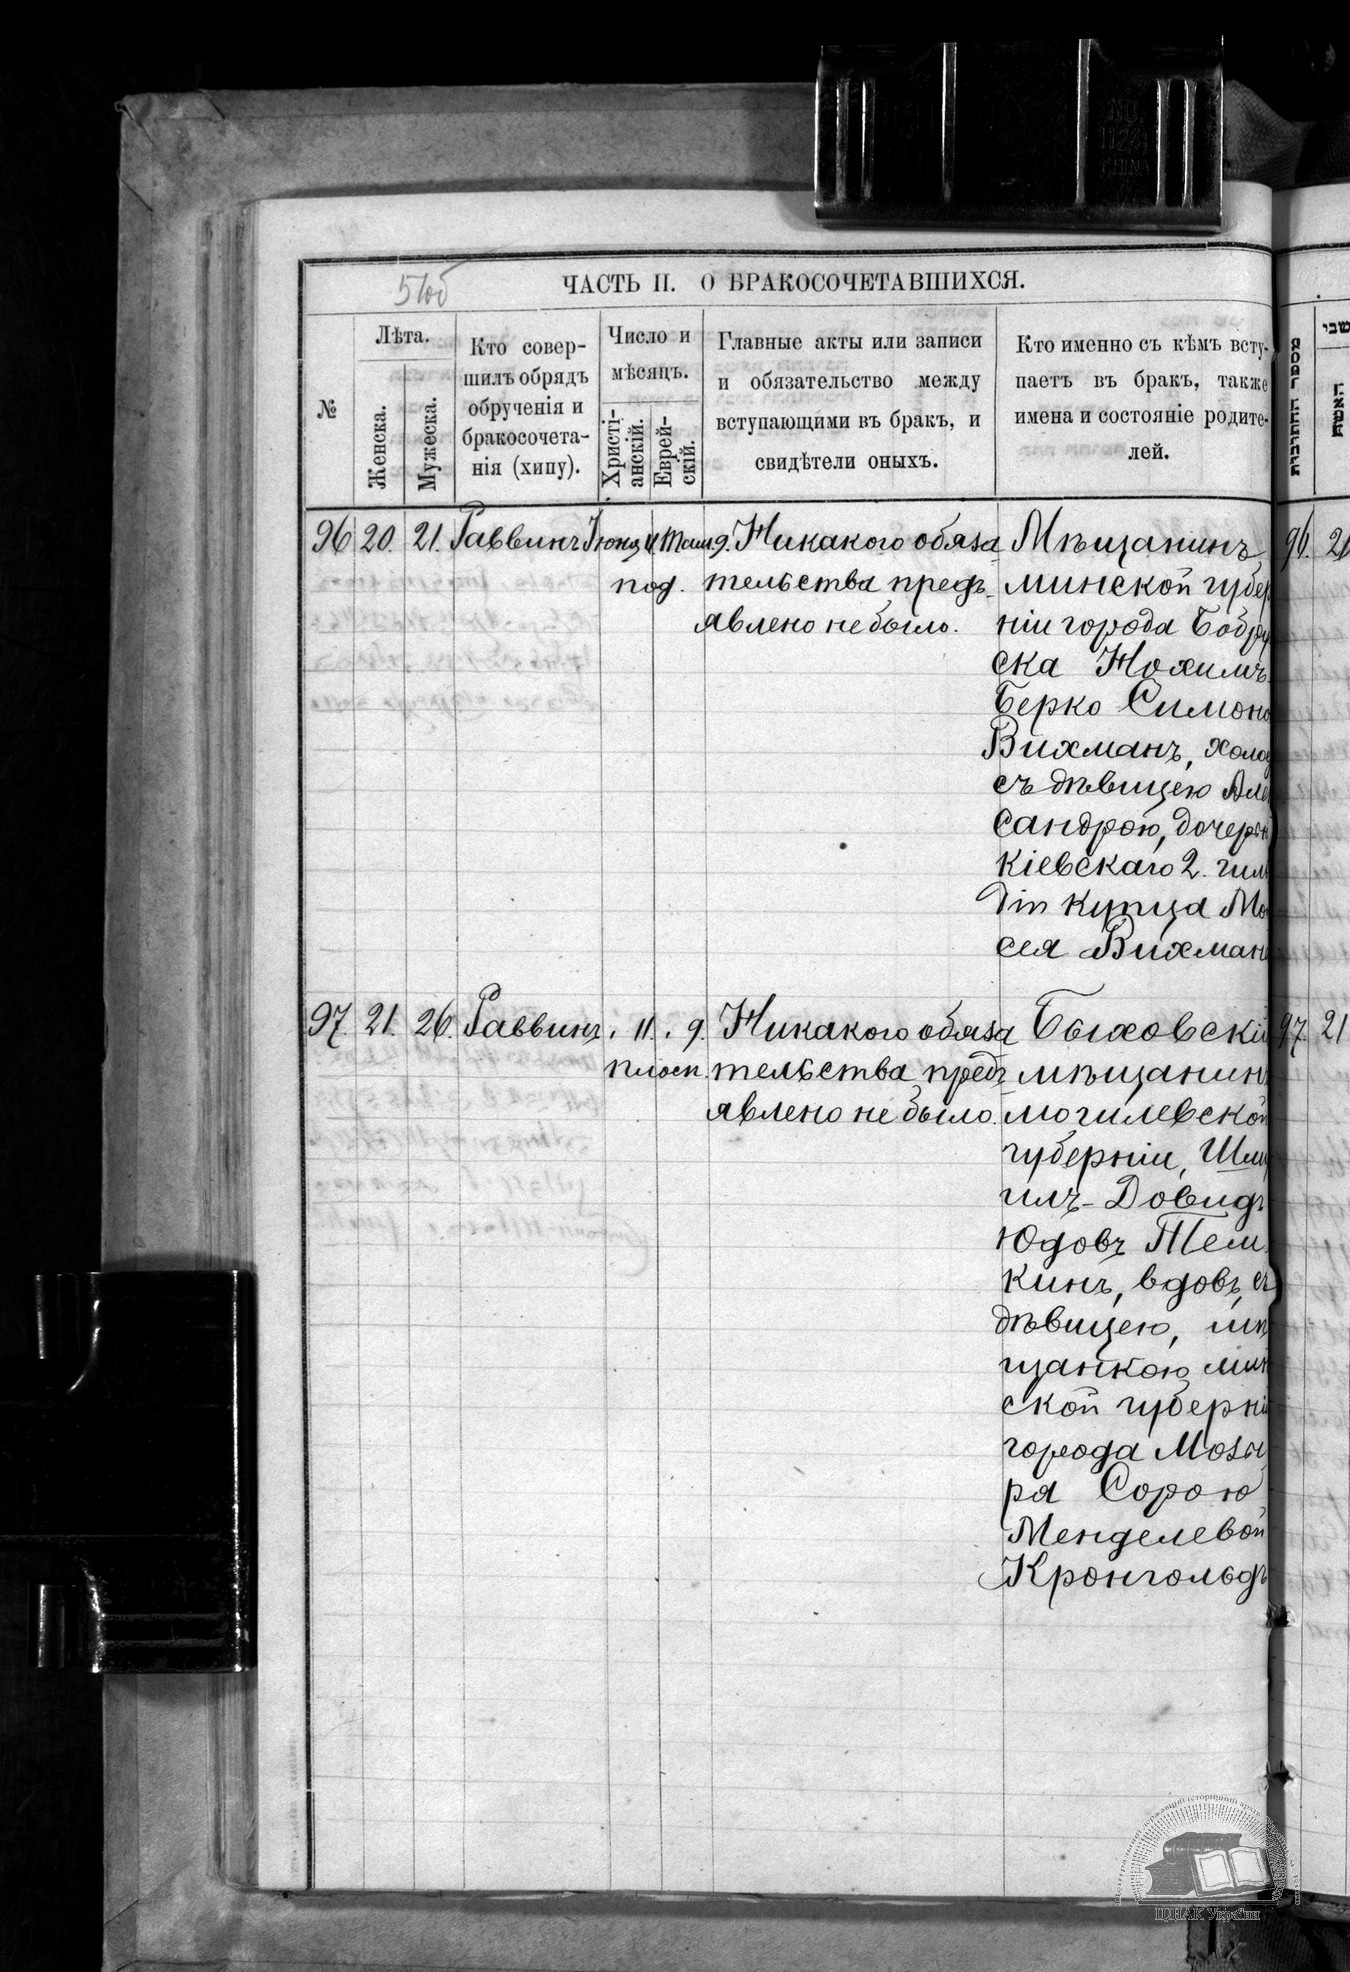 51об
ЧАСТЬ II. О БРАКОСОЧЕТАВШИХСЯ.
№
Лѣта.
Женска.
Мужеска.
Кто совер-
шилъ обрядъ
обрученія и
бракосочета-
нія (хипу).
Число и
мѣсяцъ.
Христі-
анскій.
Еврей-
скій.
Главные акты или записи
и обязательство между
вступающими въ бракъ, и
свидѣтели оныхъ.
Кто именно съ кѣмъ всту-
паетъ въ бракъ, также
имена и состояніе родите-
лей.
96 20. 21. Раввинъ Іюня 11 Там. 9.
под.
Никакого обяза
тельства предъ-
явлено не было.
Мѣщанинъ
минской губер
ніи города Бобруй
ска Нохимъ
Берко Симоно
Вихманъ, холо
съ дѣвицею Алек
сандрою, дочерью
кіевскаго 2. гил
діи купца Мо
сея Вихман
97. 21. 26. Раввинъ. 11. 9.
Никакого обяза
тельства предъ
явлено не было.
Быховскій
мѣщанинъ
могилевской
губерніи, Шму
илъ-Довидъ
Юдовъ Тем
кинъ, вдов, съ
дѣвицею, мѣ
щанкою мин
ской губерніи
города Мозы
ря Сорою
Менделевой
Кронгольдъ
96. 2
97. 21
ЦДІАК України